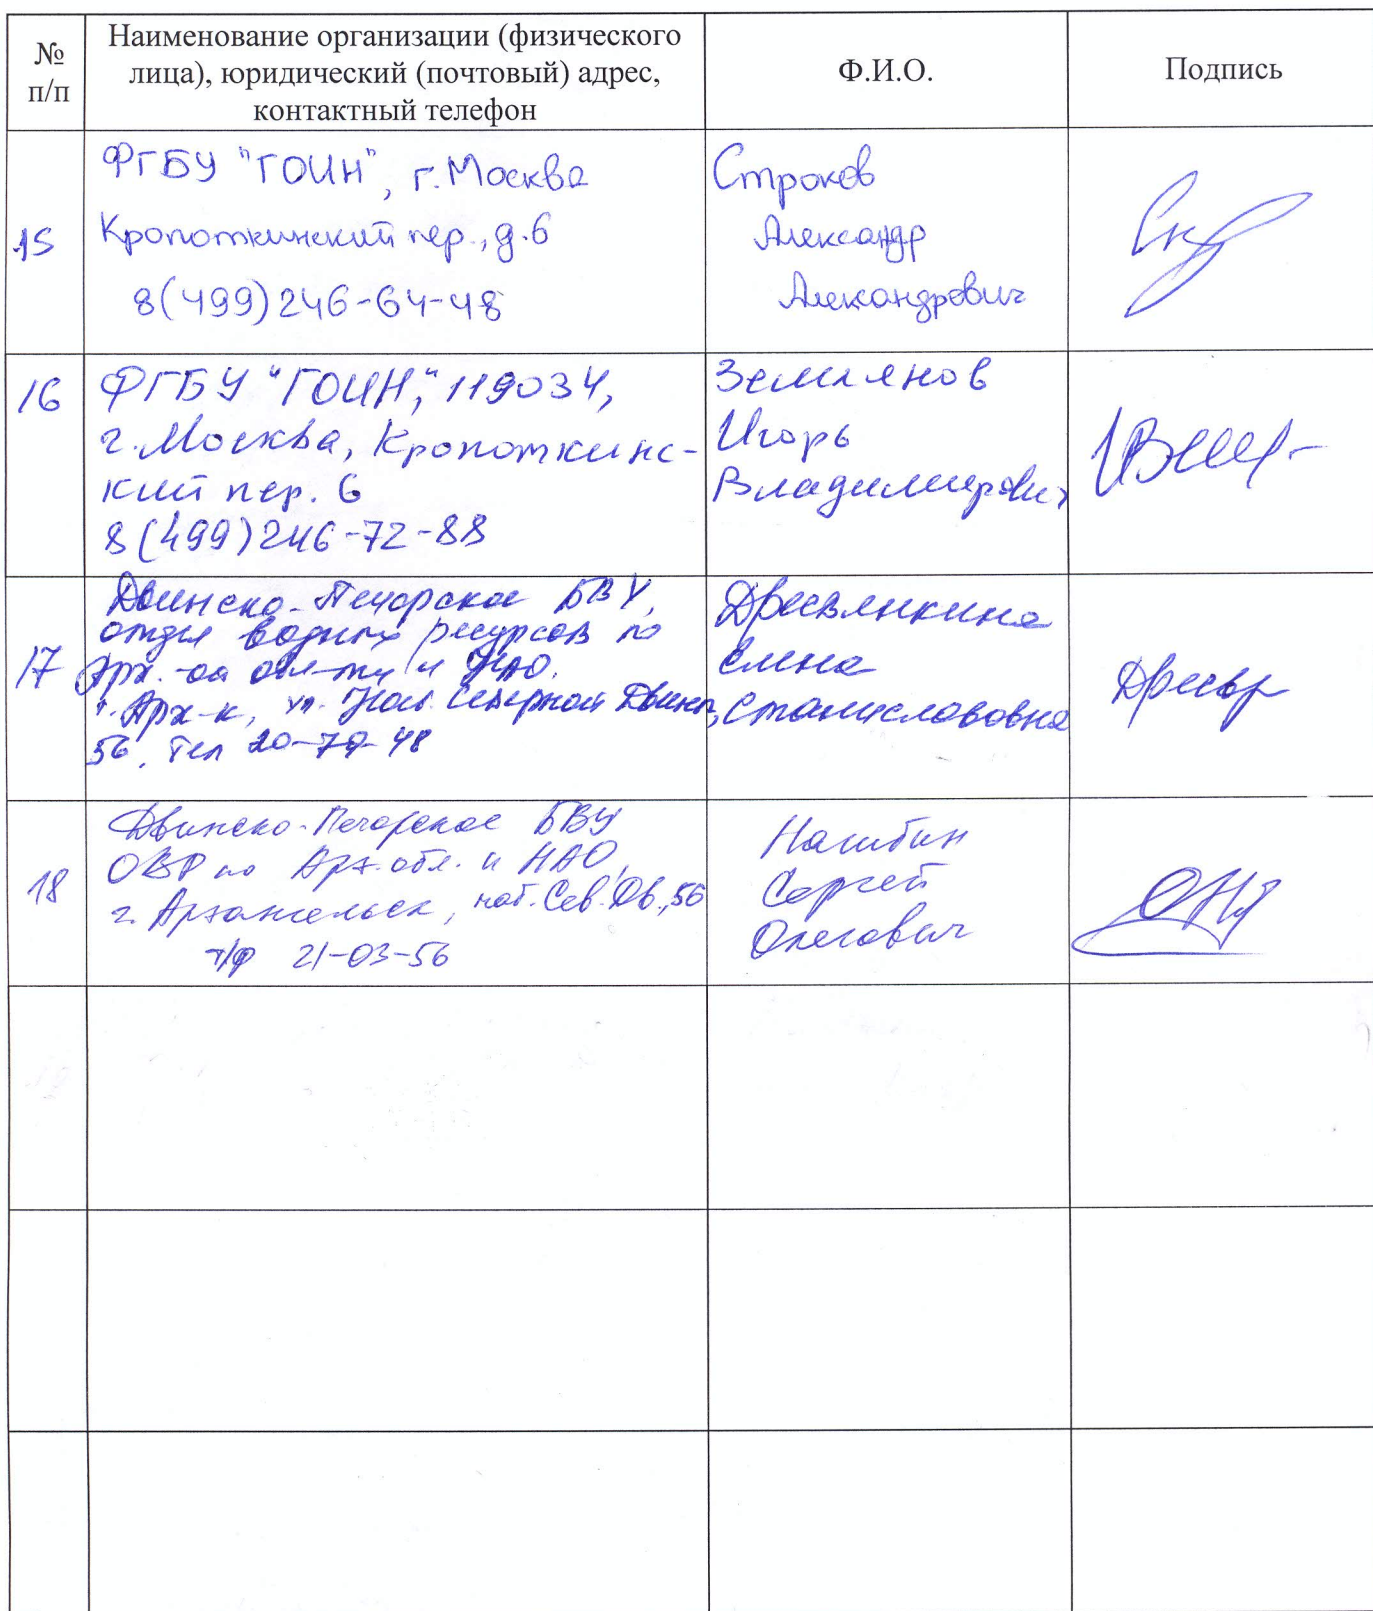 № п/п
Наименование организации (физического
лица), юридический (почтовый) адрес,
контактный телефон
Ф.И.О.
Подпись
15
ФГБУ "ГОИН", г. Москва
Кропоткинский пер., д. 6
8(499)246-64-48
Строков
Александр
Александрович
16
ФГБУ "ГОИН", 119034,
г. Москва, Кропоткинс-
кий пер. 6
8(499)246-72-88
Землянов
Игорь
Владимирович
17
Двинско-Печорское БВУ,
отдел водных ресурсов по
Арх.-ой обл-ти и НАО.
г. Арх-к, ул. Наб. Северной Двины,
56, тел 20-79-48
Древлянкина
Елена
Станиславовна
18
Двинско-Печорское БВУ
ОВР по Арх. обл. и НАО,
г. Архангельск, наб. Сев. Дв., 56
т/ф 21-03-56
Сергей
Олегович